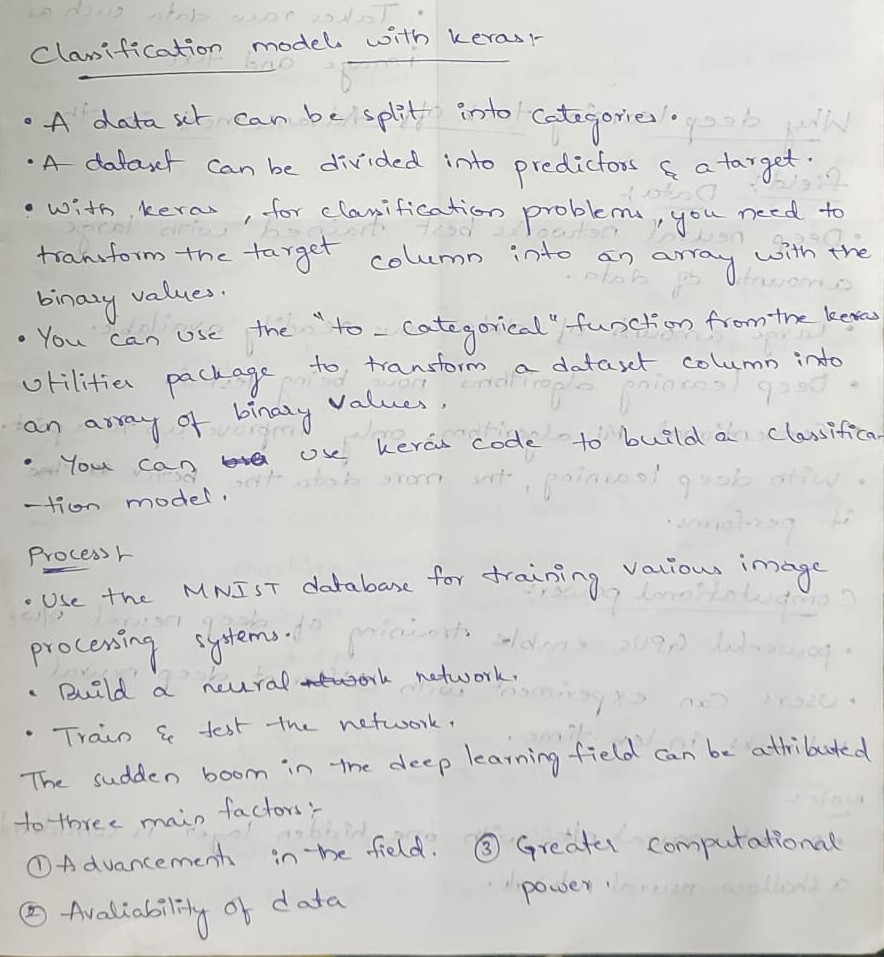 Classification models with keras:-
• A data set can be split into categories.
• A dataset can be divided into predictors & a target.
• With keras, for classification problems, you need to
transform the target column into an array with the
binary values.
• You can use the "to - categorical" function from the keras
utilities package to transform a dataset column into
an array of binary values.
• You can use keras code to build a classifica-
-tion model.
Process:-
• Use the MNIST database for training various image
processing systems.
• Build a neural network.
• Train & test the network.
The sudden boom in the deep learning field can be attributed
to three main factors:-
① Advancements in the field. ③ Greater computational
power.
② Avaliability of data